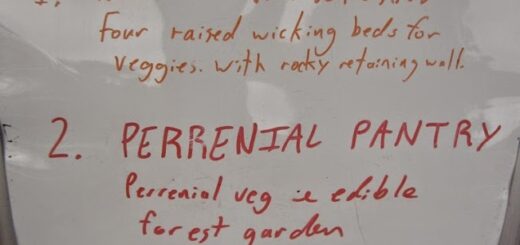 1.
Four raised wicking beds for
veggies. with rocky retaining wall.
2. PERRENIAL PANTRY
Perrenial veg ie edible
forest garden